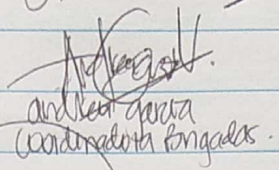 andrea garcia
Coordinadora Brigadas.